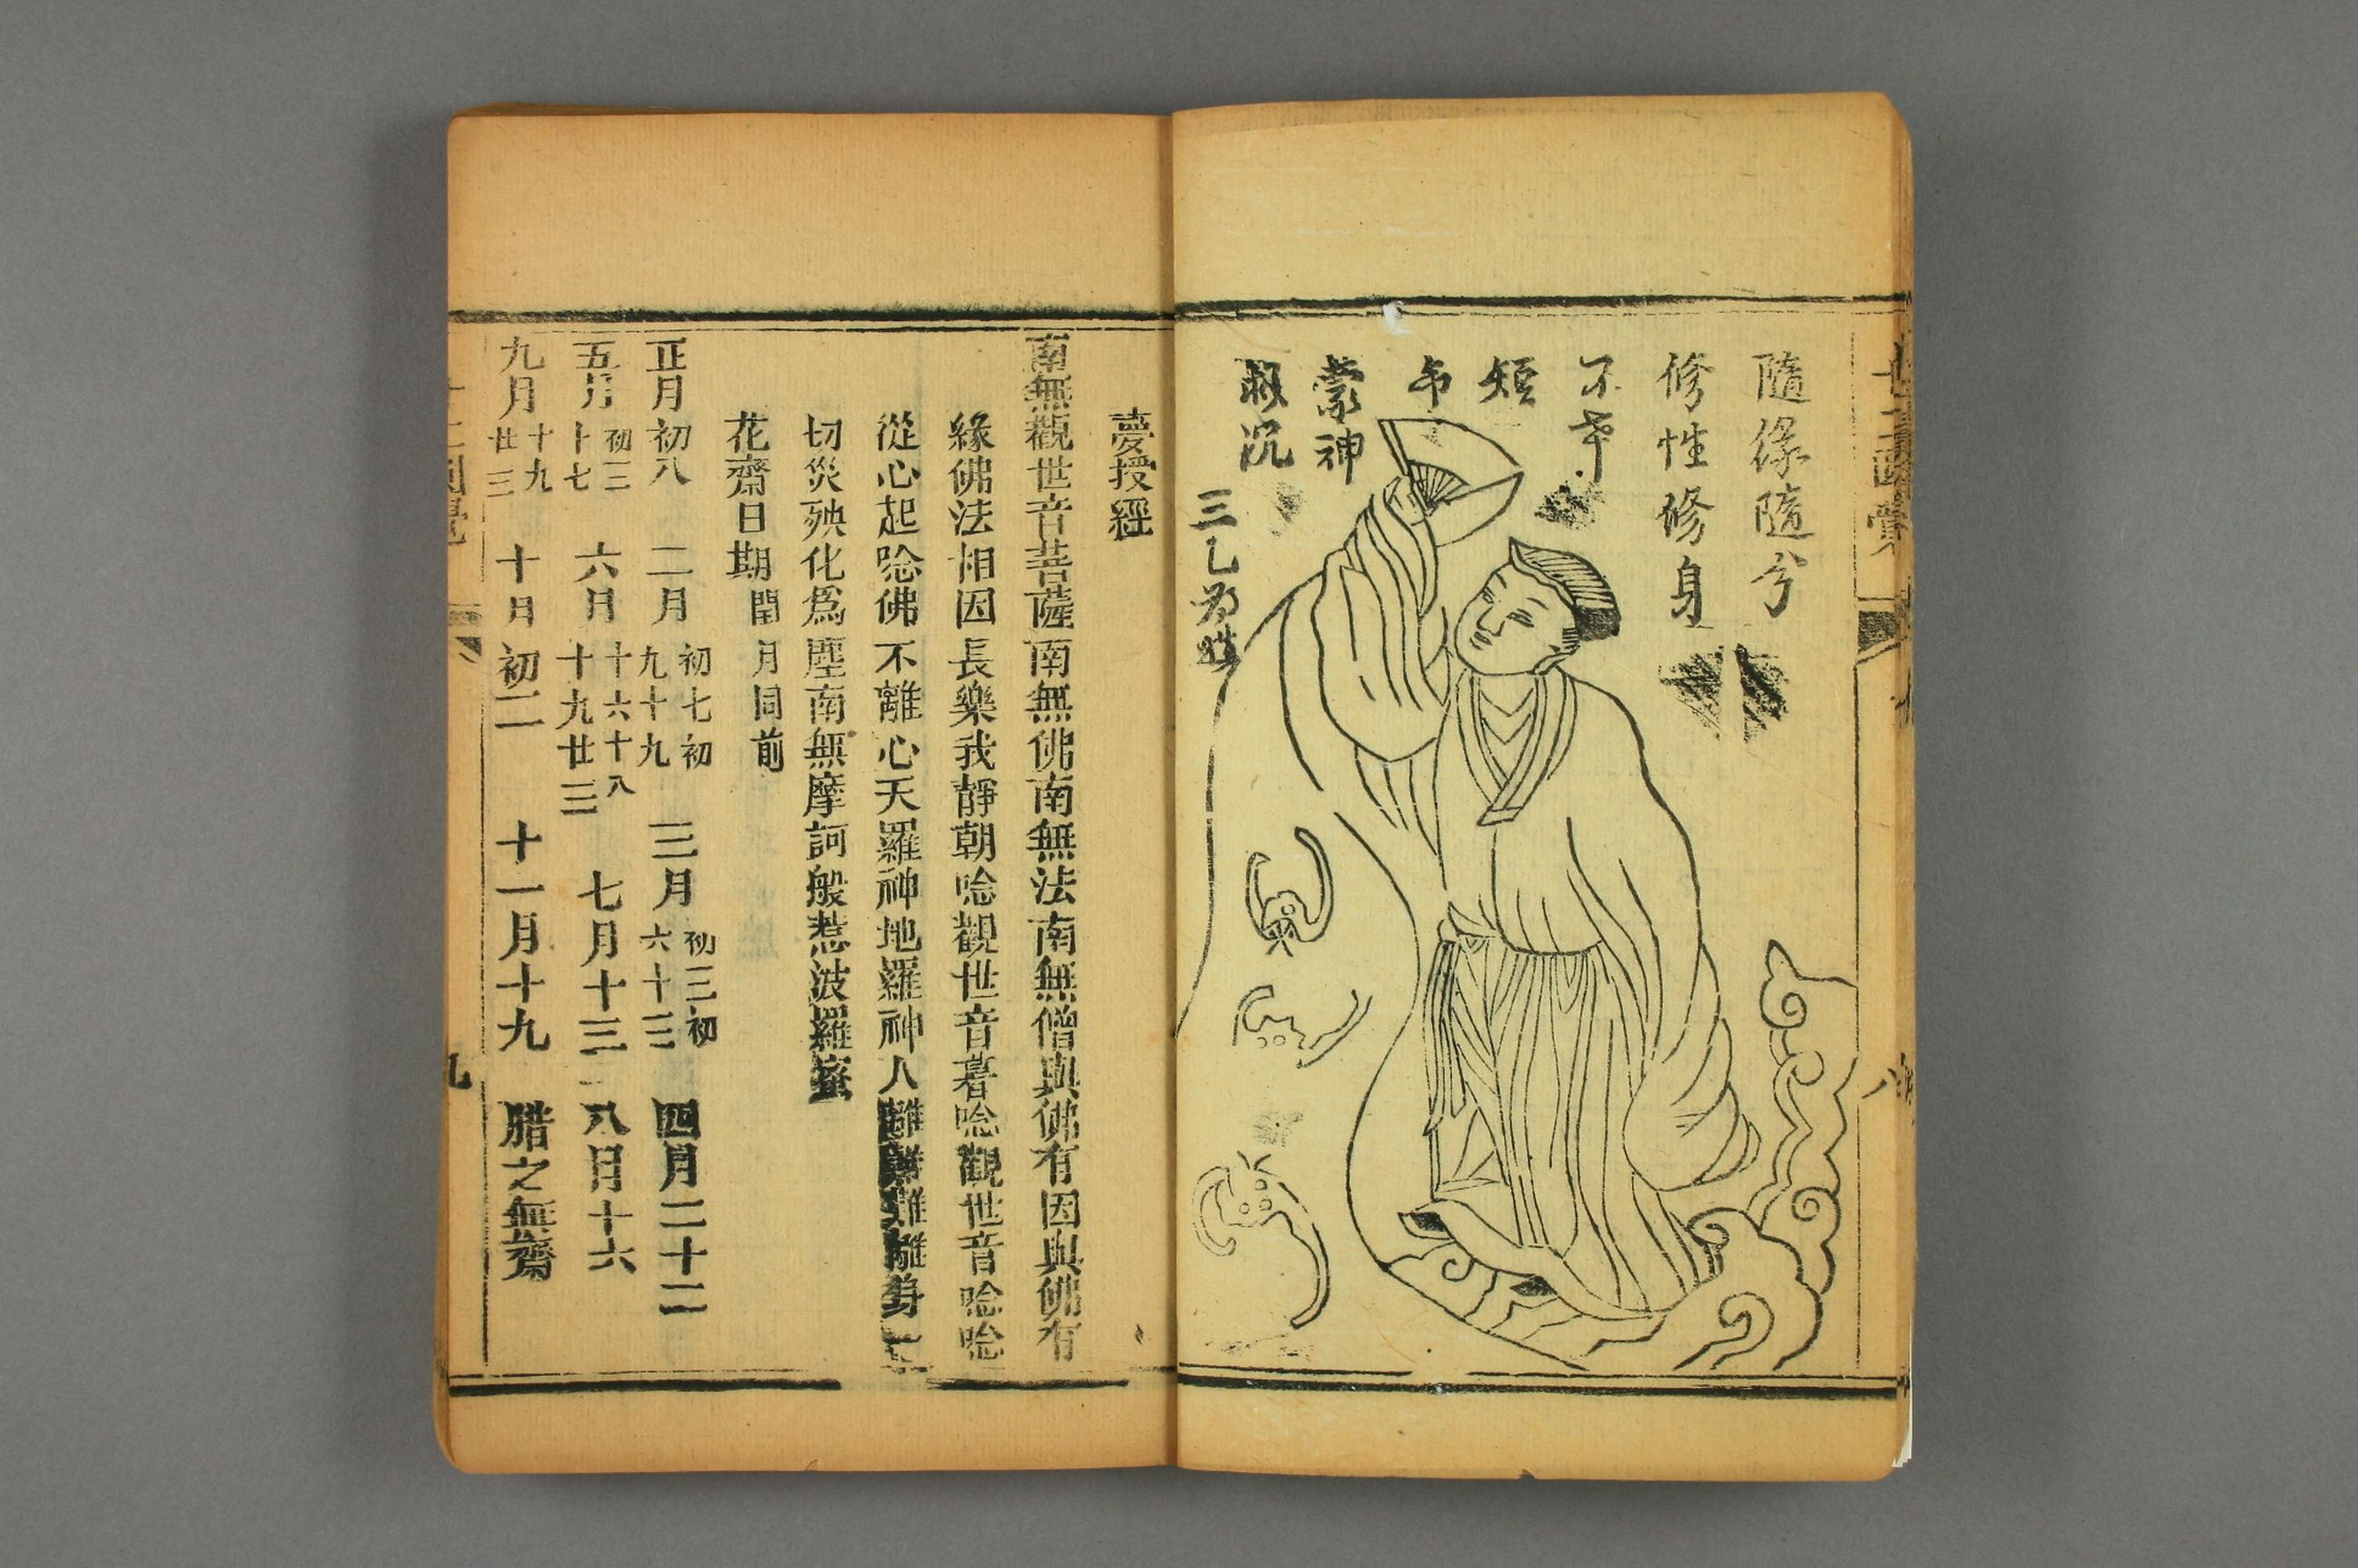 隨緣隨兮
修性修身
不
短
帋
蒙神
三乙
夢授經
南無觀世音菩薩南無佛南無法南無僧與佛有因與佛有
緣佛法相因長樂我靜朝唸觀世音暮唸觀世音唸唸
從心起唸佛不離心天羅神地羅神人離難難離身一
切災殃化爲塵南無摩訶般惹波羅蜜
花齋日期閏月同前
正月初八 二月初七初九十九 三月初三初六十三 四月二十二
五月初三十七 六月十六十八十九廿三 七月十三 八月十六
九月十九廿三 十月初二 十一月十九 腊之無齋
九